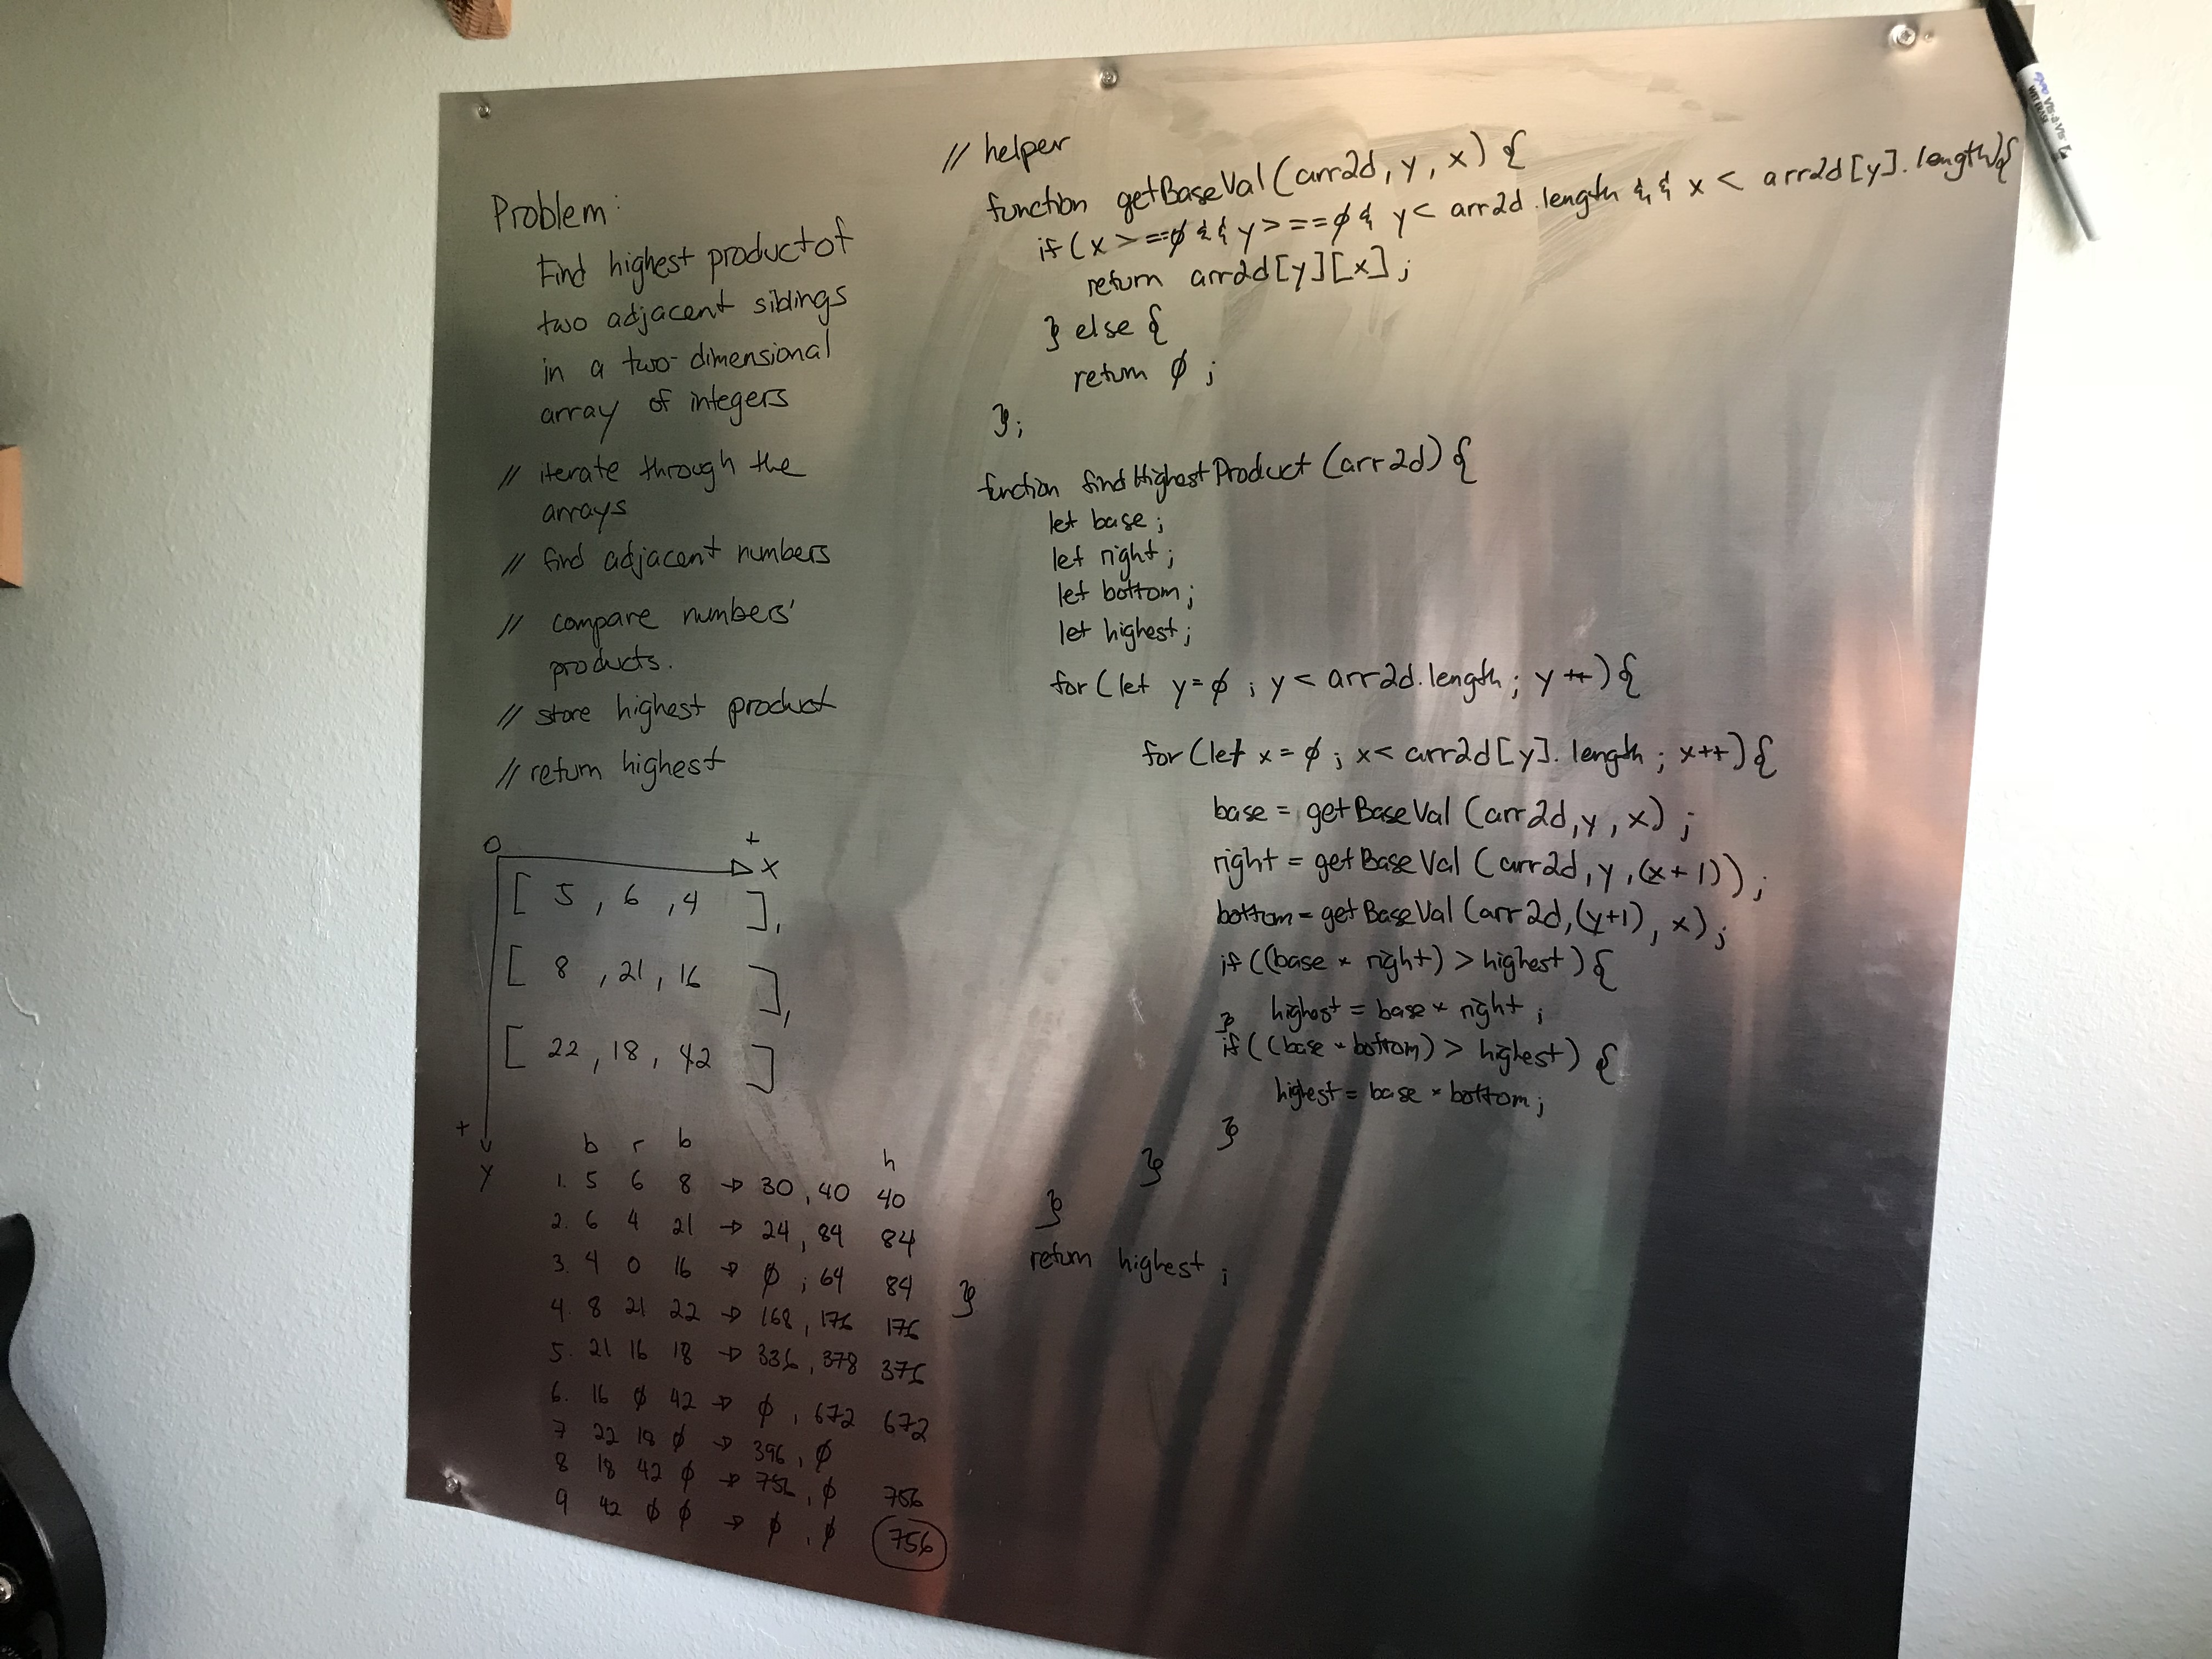 Problem:
Find highest product of
two adjacent siblings
in a two-dimensional
array of integers
// iterate through the
arrays
// find adjacent numbers
// compare numbers'
products.
// store highest product
// return highest
0 + X
[ 5 , 6 , 4 ],
[ 8 , 21 , 16 ],
[ 22 , 18 , 42 ]
+
Y
b r b h
1. 5 6 8 → 30 , 40 40
2. 6 4 21 → 24 , 84 84
3. 4 0 16 → ∅ , 64 84
4. 8 21 22 → 168 , 176 176
5. 21 16 18 → 336 , 378 376
6. 16 ∅ 42 → ∅ , 672 672
7 22 18 ∅ → 396 , ∅
8 18 42 ∅ → 756 , ∅ 756
9 42 ∅ ∅ → ∅ , ∅ 756
// helper
function getBaseVal (arr2d, y, x) {
if (x >==∅ && y >==∅ & y < arr2d.length && x < arr2d[y].length) {
return arr2d[y][x] ;
} else {
return ∅ ;
};
function findHighestProduct (arr2d) {
let base ;
let right ;
let bottom ;
let highest ;
for (let y = ∅ ; y < arr2d.length ; y++) {
for (let x = ∅ ; x < arr2d[y].length ; x++) {
base = getBaseVal (arr2d, y, x) ;
right = getBaseVal (arr2d, y, (x+1)) ;
bottom = getBaseVal (arr2d, (y+1), x) ;
if ((base * right) > highest) {
highest = base * right ;
}
if ((base * bottom) > highest) {
highest = base * bottom ;
}
}
}
return highest ;
}